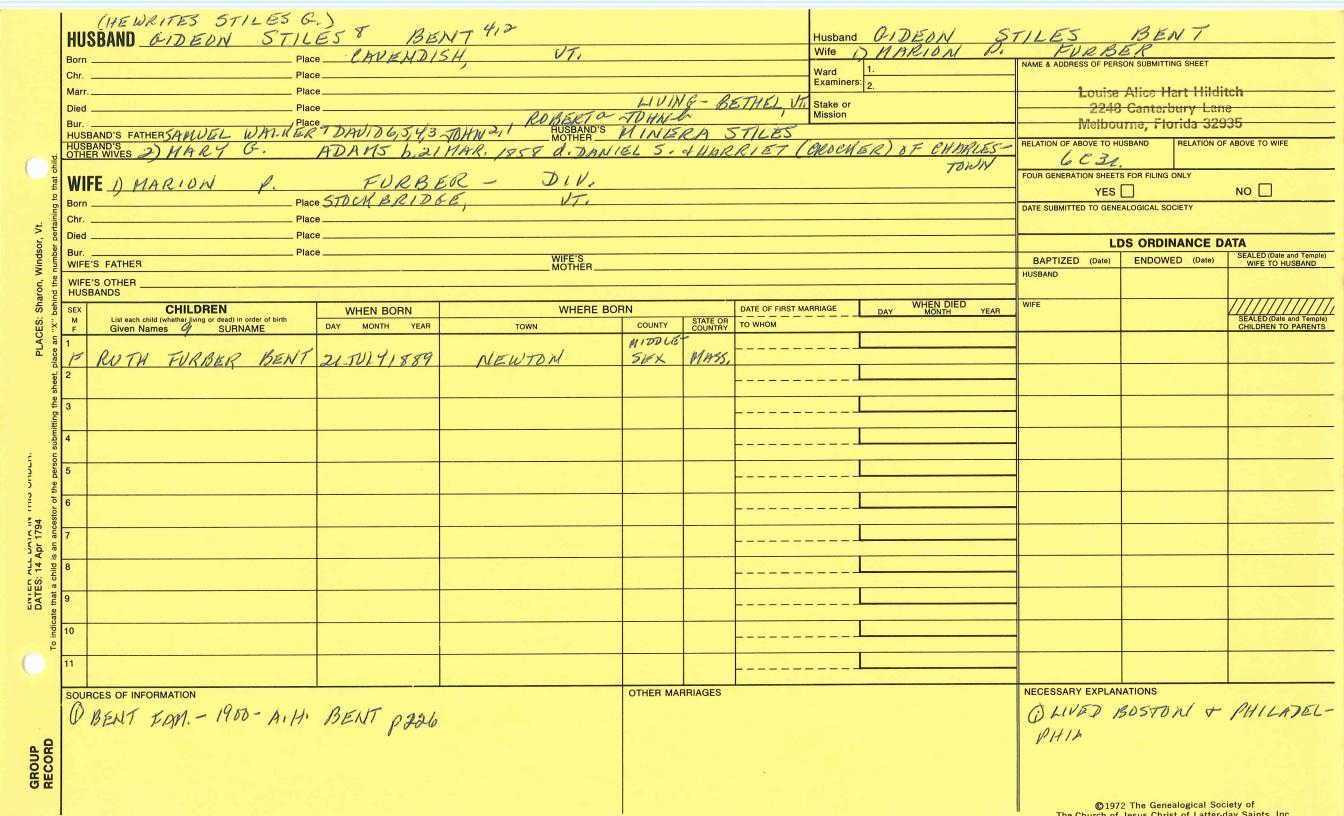 (HE WRITES STILES G.)
HUSBAND GIDEON STILES 8 BENT 412
Born Place CAVENDISH, VT.
Chr. Place
Marr. Place
Died Place LIVING - BETHEL, VT.
Bur. Place ROBERT a JOHN b
HUSBAND'S FATHER SAMUEL WALKER 7 DAVID 6,5,4,3 JOHN 2,1 HUSBAND'S MOTHER MINERA STILES
HUSBAND'S OTHER WIVES 2) MARY G. ADAMS b. 21 MAR. 1858 d. DANIEL S. & HARRIET (CROCHER) OF CHARLES-
TOWN
WIFE 1) MARION P. FURBER - DIV.
Born Place STOCKBRIDGE, VT.
Chr. Place
Died Place
Bur. Place
WIFE'S FATHER WIFE'S MOTHER
WIFE'S OTHER HUSBANDS
Husband GIDEON STILES BENT
Wife 1) MARION P. FURBER
Ward Examiners: 1.
2.
Stake or Mission
NAME & ADDRESS OF PERSON SUBMITTING SHEET
Louise Alice Hart Hilditch
2248 Canterbury Lane
Melbourne, Florida 32935
RELATION OF ABOVE TO HUSBAND RELATION OF ABOVE TO WIFE
6C3r.
FOUR GENERATION SHEETS FOR FILING ONLY
YES NO
DATE SUBMITTED TO GENEALOGICAL SOCIETY
LDS ORDINANCE DATA
BAPTIZED (Date) ENDOWED (Date) SEALED (Date and Temple) WIFE TO HUSBAND
HUSBAND
WIFE
SEALED (Date and Temple) CHILDREN TO PARENTS
SEX M F CHILDREN WHEN BORN WHERE BORN DATE OF FIRST MARRIAGE WHEN DIED
List each child (whether living or dead) in order of birth
Given Names 9 SURNAME DAY MONTH YEAR TOWN COUNTY STATE OR COUNTRY TO WHOM DAY MONTH YEAR
1 MIDDLE-
F RUTH FURBER BENT 21 JULY 1889 NEWTON SEX MASS.
2
3
4
5
6
7
8
9
10
11
SOURCES OF INFORMATION
① BENT FAM. - 1900 - A.H. BENT p226
OTHER MARRIAGES
NECESSARY EXPLANATIONS
① LIVED BOSTON & PHILADEL-
PHIA
©1972 The Genealogical Society of
The Church of Jesus Christ of Latter-day Saints, Inc.
PLACES: Sharon, Windsor, Vt.
ENTER ALL DATA IN THIS ORDER:
DATES: 14 Apr 1794
To indicate that a child is an ancestor of the person submitting the sheet, place an "X" behind the number pertaining to that child.
GROUP
RECORD